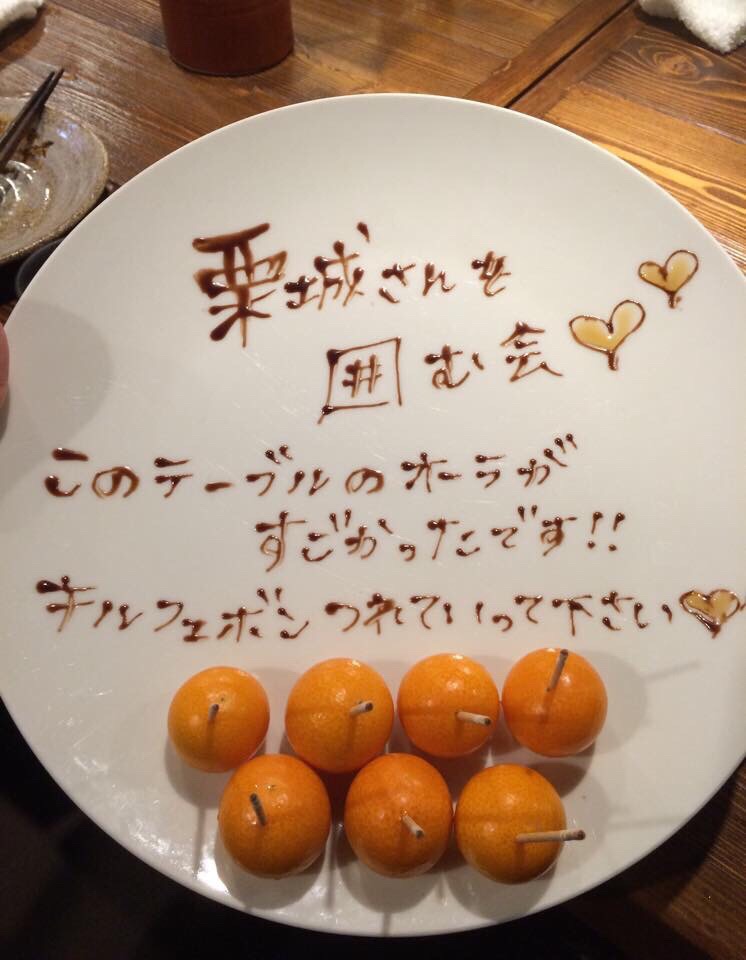 栗城さんを
囲む会
このテーブルのオーラが
すごかったです!!
キルフェボンつれていって下さい